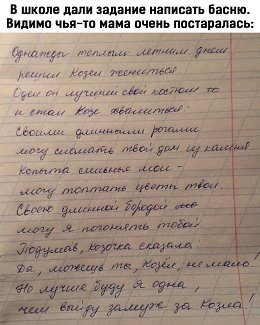 В школе дали задание написать басню.
Видимо чья-то мама очень постаралась:
Однажды теплым летним днем
решил Козел жениться
Одел он лучший свой костюм
и стал Козе хвалиться:
Своими длинными рогами
могу сломать твой дом из камня
Копыта сильные мои -
могу топтать цветы твои.
Своею длинной бородой
могу я погонять тобой.
Подумав, козочка сказала:
Да, можешь ты, Козёл, не мало!
Но лучше буду я одна,
чем выйду замуж за Козла!